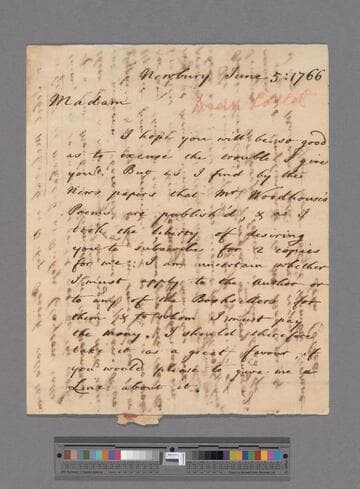 Newbury June 5: 1766
Madam
I hope you will be so good
as to excuse the trouble I give
you. But as I find by the
News papers that Mr Woodhouse's
Poems are publish'd, & as I
took the liberty of desiring
you to subscribe for 2 copies
for me: I am uncertain whether
I must apply to the Author or
to any of the Booksellers for
them & to whom I must pay
the mony. I should therefore
take it as a great favour if
you would please to give me a
Line about it.